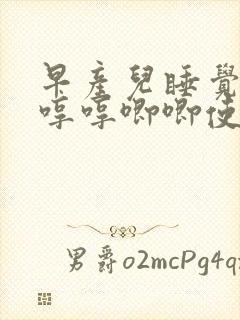 早產兒睡覺
哼哼唧唧使
男爵o2mcPg4q